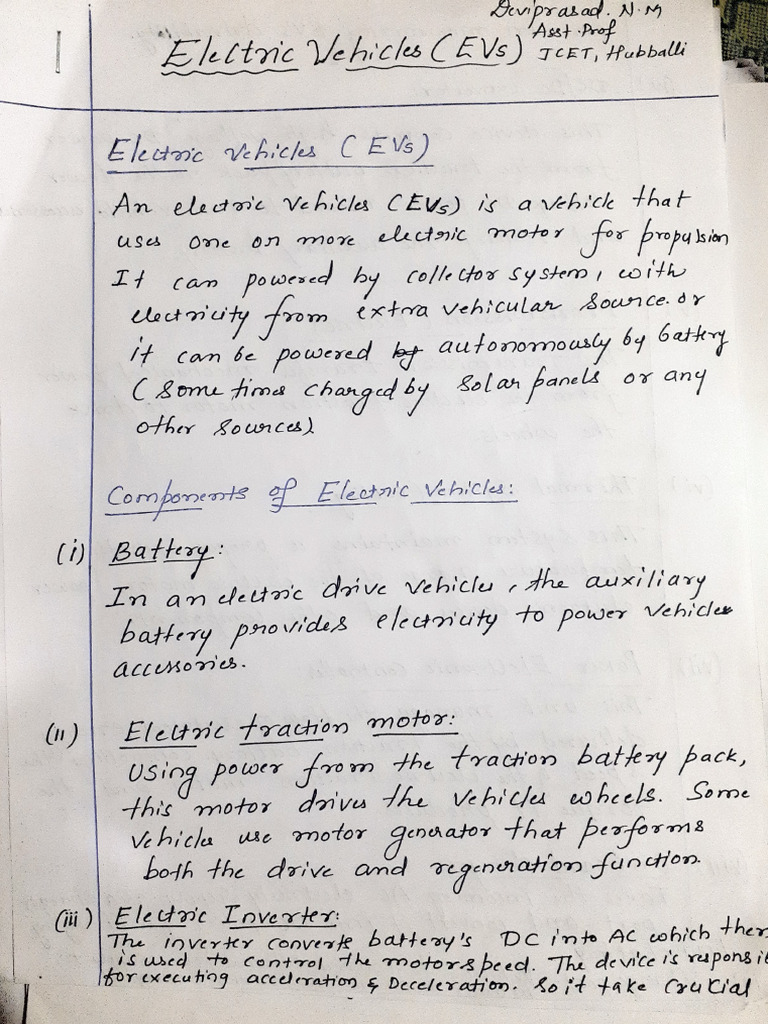 Deviprasad. N. M
Asst. Prof
JCET, Hubballi
1
Electric Vehicles (EVs)
Electric Vehicles (EVs)
An electric vehicles (EVs) is a vehicle that
uses one or more electric motor for propulsion
It can powered by collector system, with
electricity from extra vehicular source. or
it can be powered by autonomously by battery
(Some times charged by solar panels or any
other sources).
Components of Electric Vehicles:
(i) Battery:
In an electric drive vehicles, the auxiliary
battery provides electricity to power vehicles
accessories.
(ii) Electric traction motor:
Using power from the traction battery pack,
this motor drives the vehicles wheels. Some
vehicles use motor generator that performs
both the drive and regeneration function.
(iii) Electric Inverter:
The inverter converts battery's DC into AC which then
is used to control the motor speed. The device is responsi
for executing acceleration & Deceleration. So it take Crucial